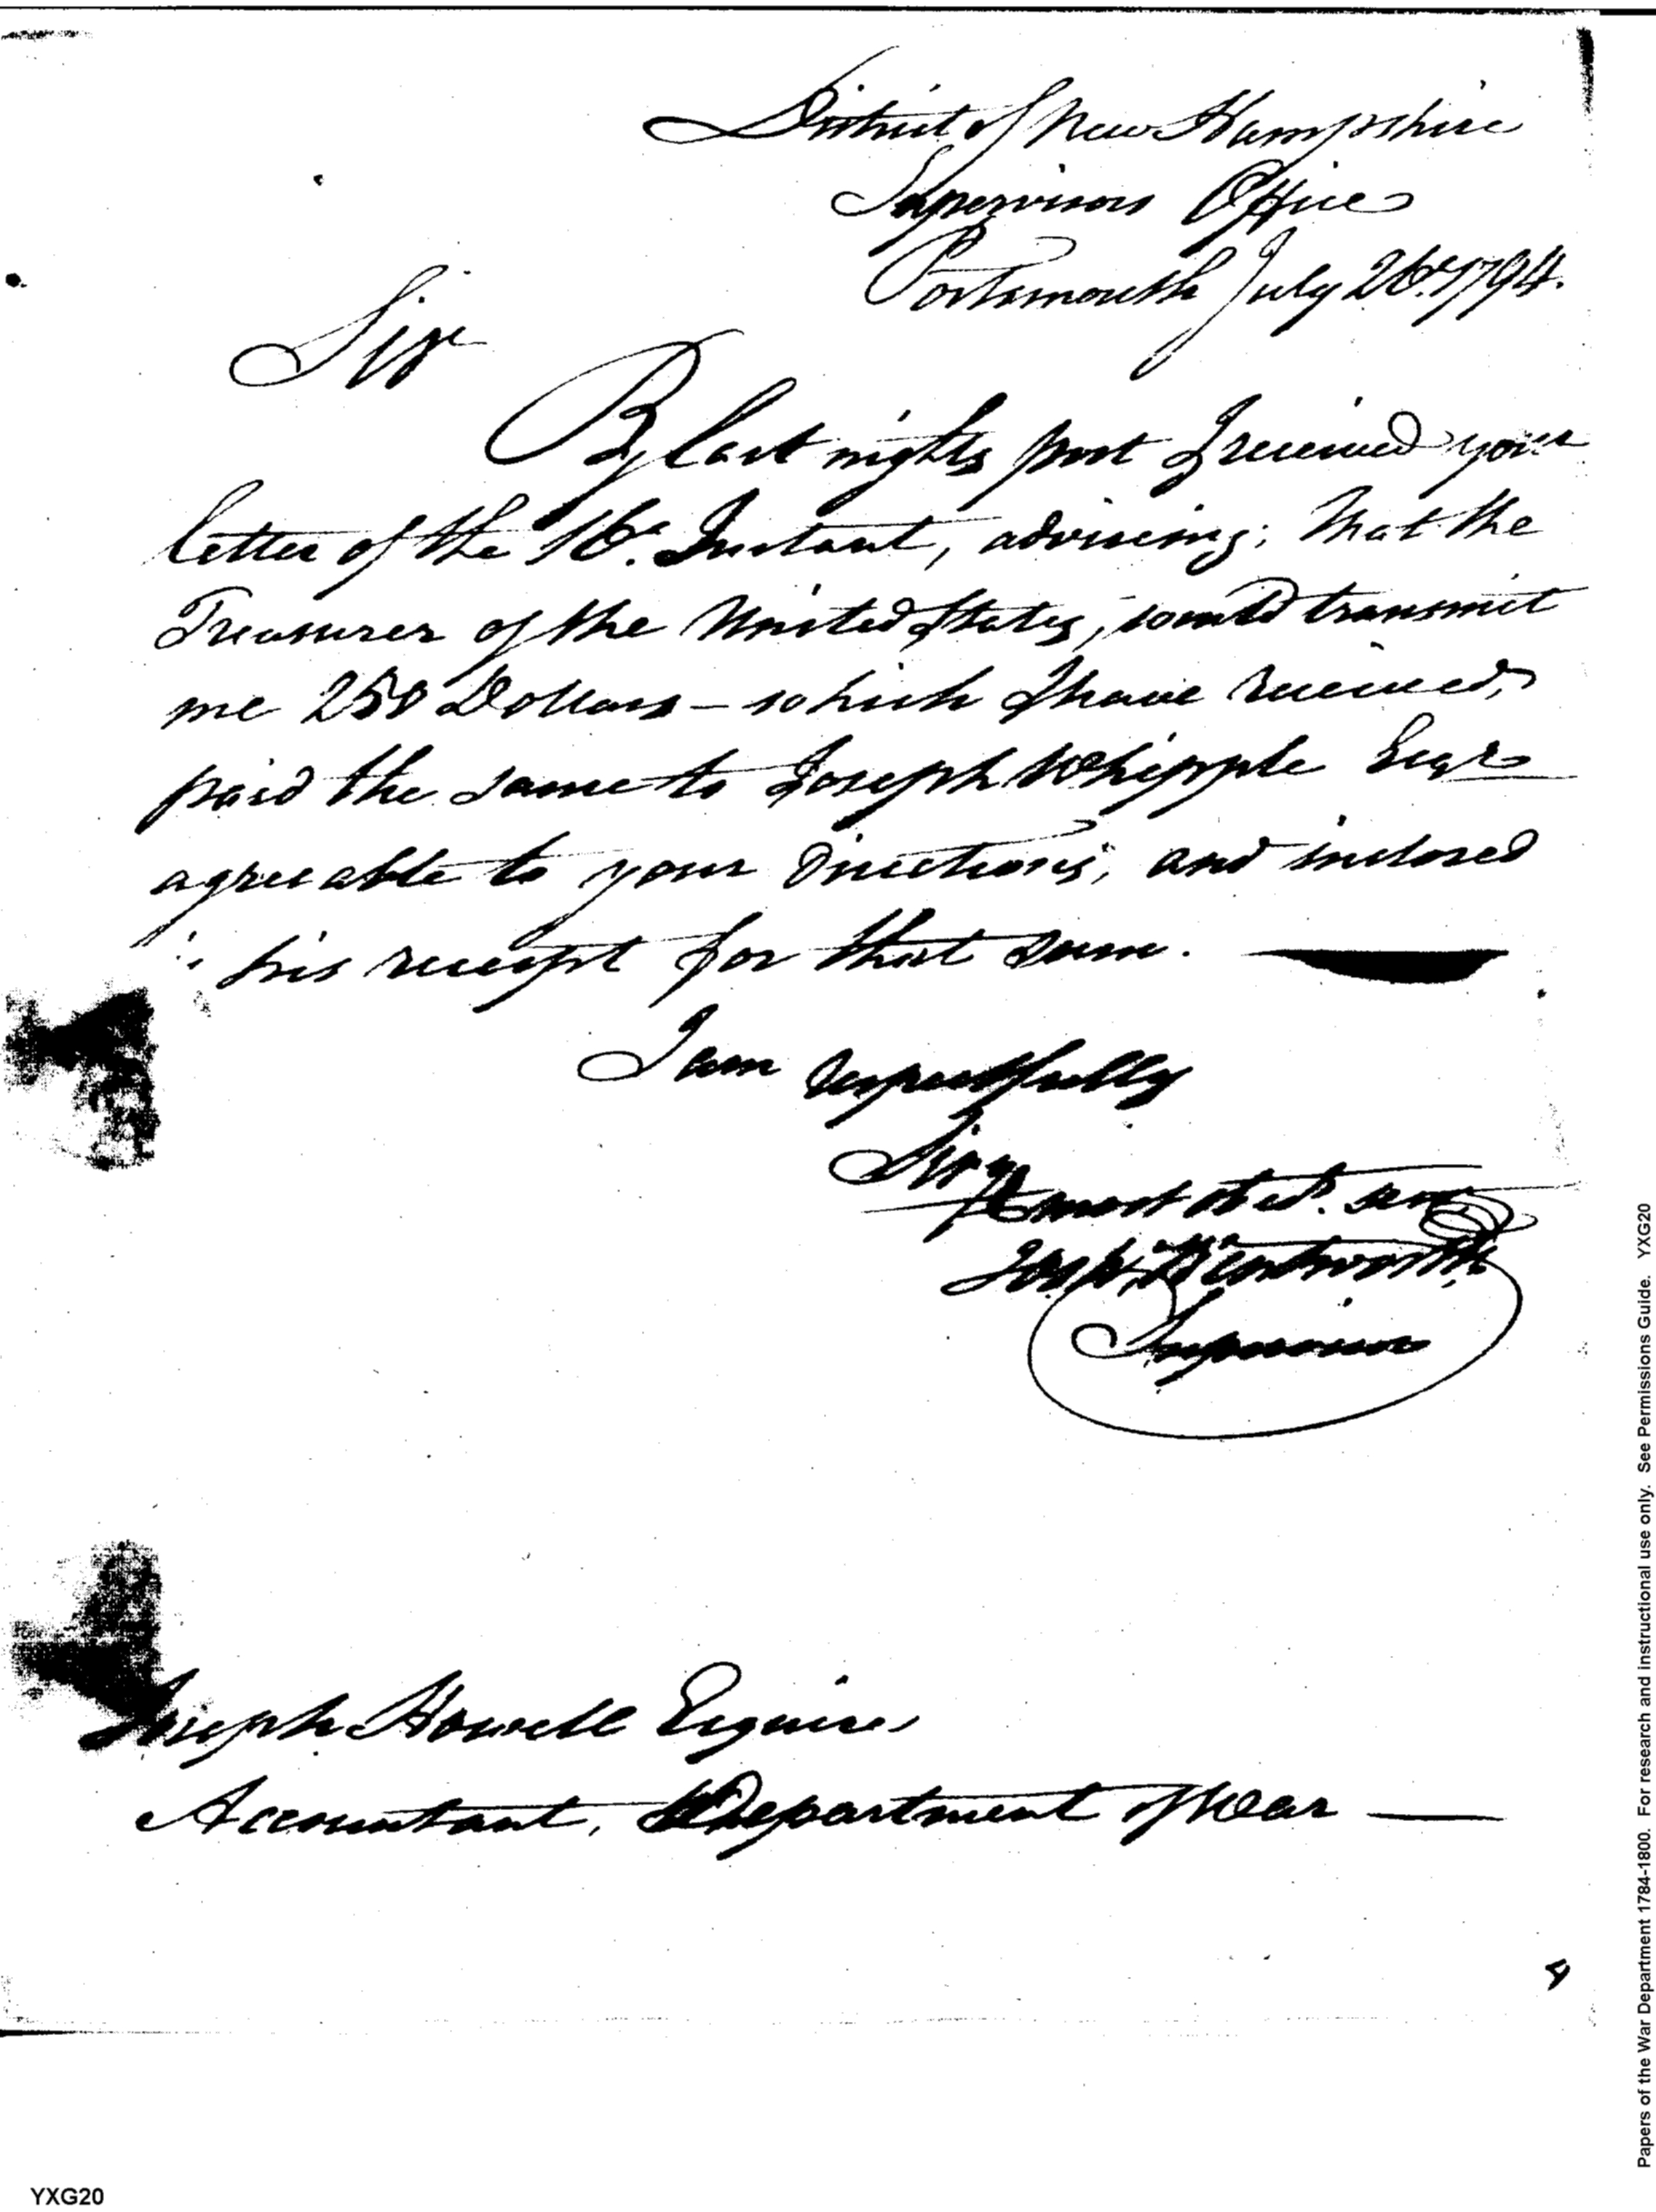 District of New Hampshire
Supervisors Office
Portsmouth July 26. 1794.
Sir
By last nights post I received your
letter of the 16. Instant, advising; that the
Treasurer of the United States, would transmit
me 258 Dollars — which I have received,
paid the same to Joseph Whipple Esqr
agreeable to your Directions, and inclosed
is his receipt for that sum.
I am respectfully
Sir
most obt. ser
Josh. Wentworth
Supervisor
Joseph Howell Esquire
Accountant, Department of War —
4
YXG20
Papers of the War Department 1784-1800. For research and instructional use only. See Permissions Guide. YXG20